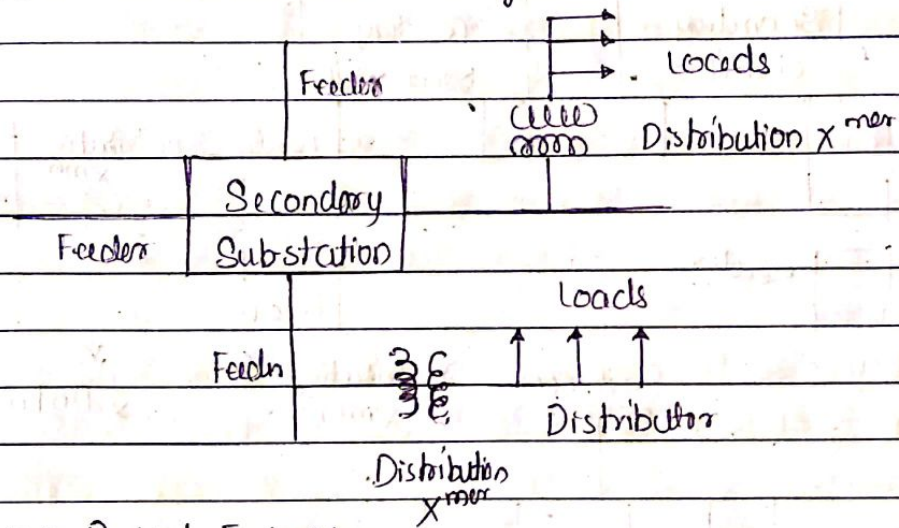 Feeder
Loads
Distribution Xmer
Secondary
Substation
Feeder
Loads
Feeder
Distributor
Distribution
Xmer